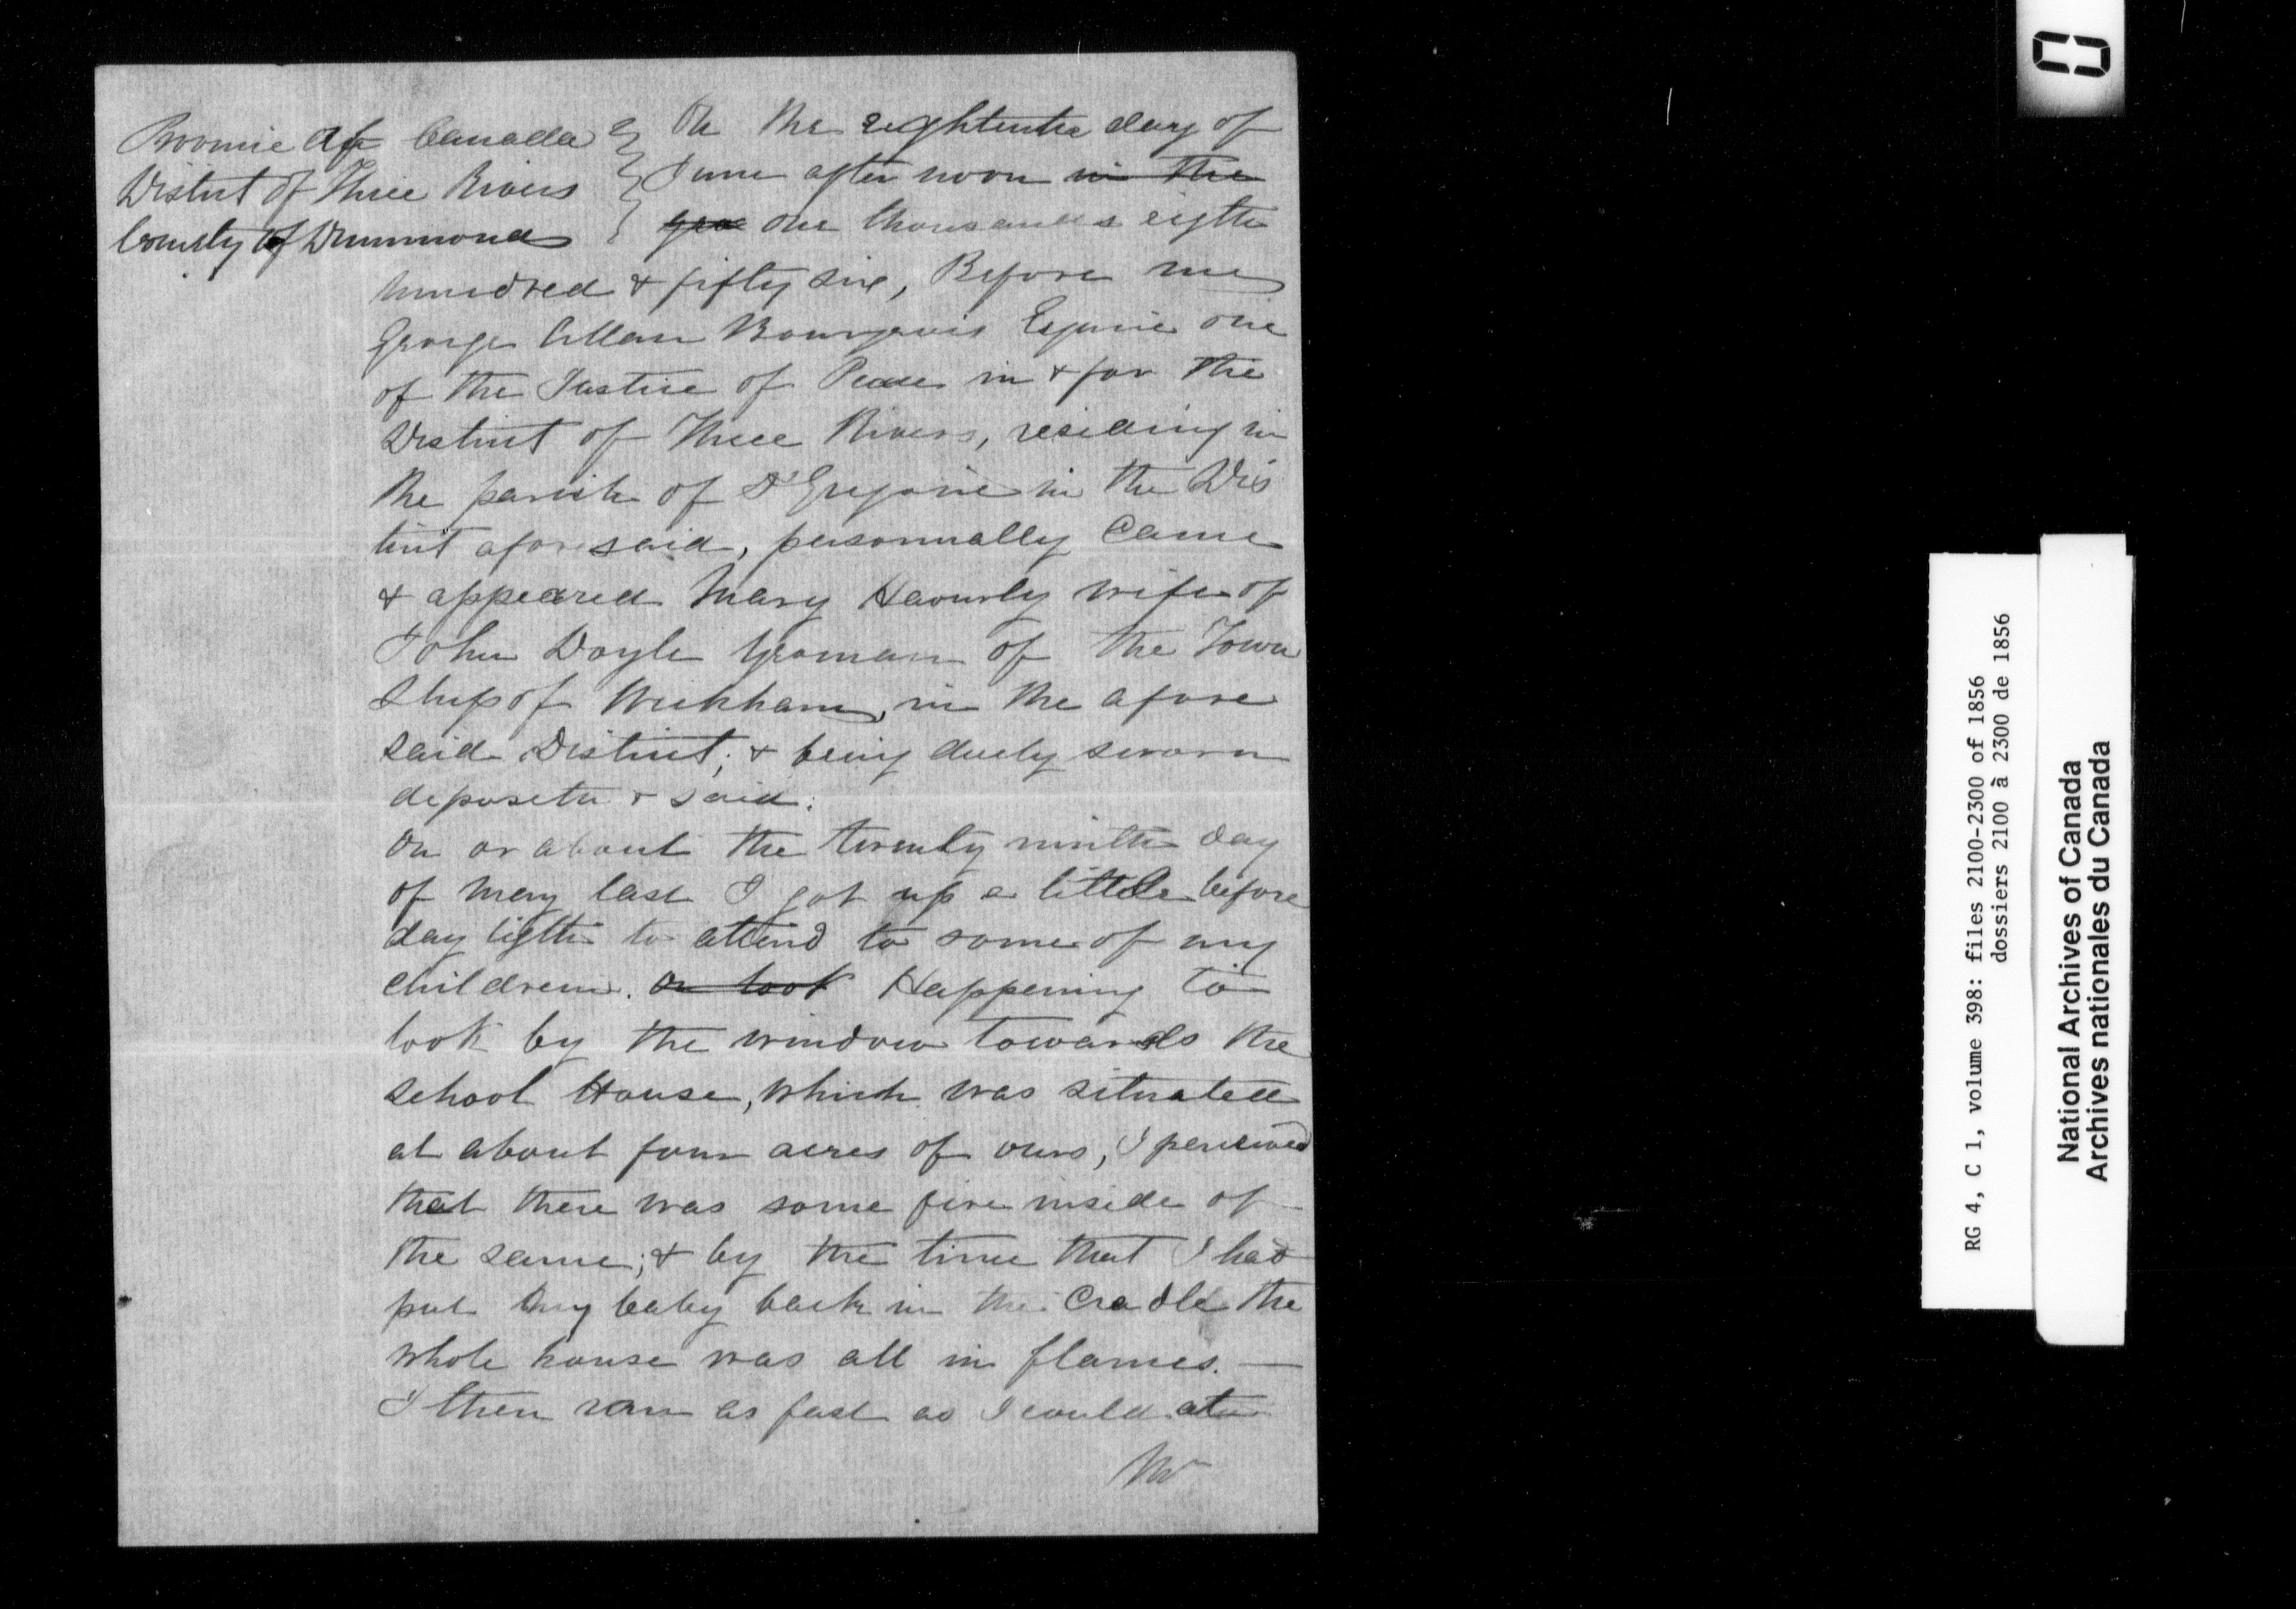 Province of Canada
District of Three Rivers
County of Drummond
On the eightenth day of
June after noon in the
yea one thousand & eigth
hundred & fifty six, Before me
George Allan Bourgeois Esquire one
of the Justice of Peace in & for the
District of Three Rivers, residing in
the parish of St Gregoire in the Dis
trict aforesaid, personnally Came
& appeared Mary Haourly wife of
John Doyle Yeoman of the Town
ship of Wickham, in the afore
said District; & being duely sworn
deposeth & said:
On or about the twenty ninth day
of may last I got up a little before
day ligth to attend to some of my
children. On look Happening to
look by the window towards the
school House, which was situated
at about four acres of ours, I perceived
that there was some fire inside of
the same; & by the time that I had
put my baby back in the Cradle the
whole house was all in flames. —
I then ran as fast as I could at
Mr
RG 4, C 1, volume 398: files 2100-2300 of 1856
dossiers 2100 à 2300 de 1856
National Archives of Canada
Archives nationales du Canada